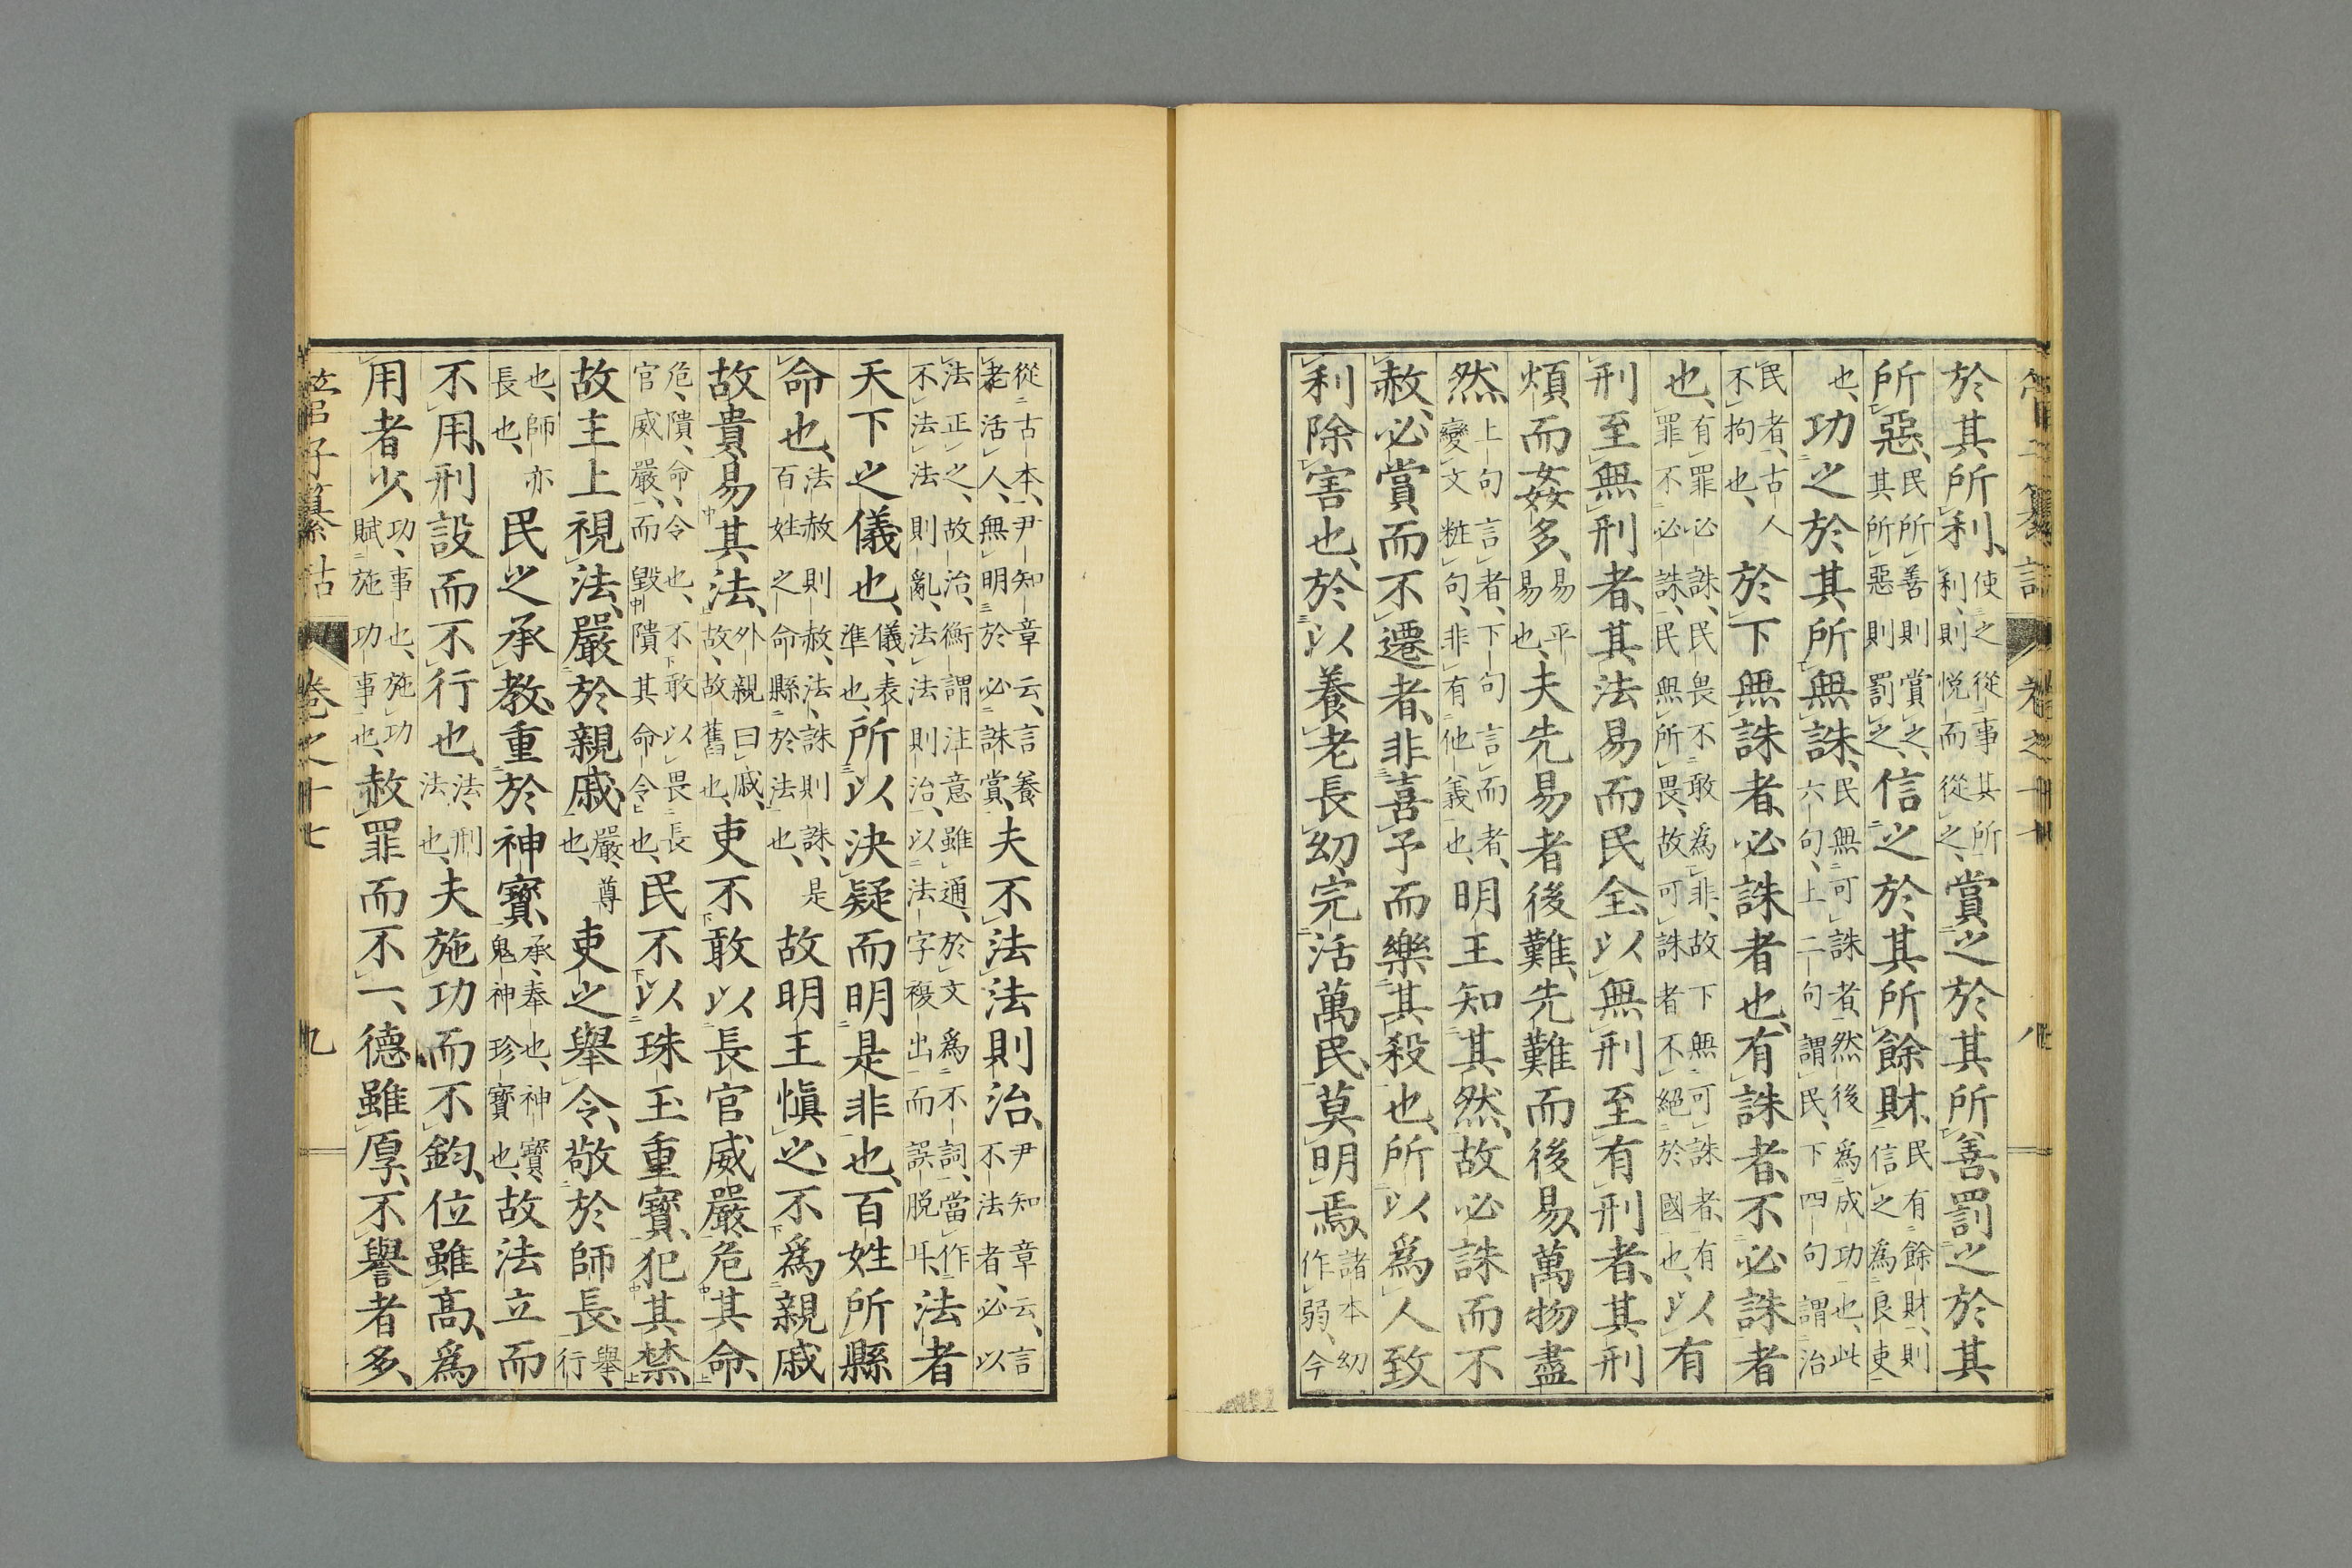 於其所利、使之從事其所利、則悦而從之、賞之於其所善、罰之於其
所惡、民所善則賞之、其所惡則罰之、信之於其所餘財、民有餘財、則信之爲良吏
也、功之於其所無誅、民無可誅者、然後爲成功也、此六句、上二句謂民、下四句謂治
民者、古人不拘也、於下無誅者、必誅者也、有誅者、不必誅者
也、有罪必誅、民畏不敢爲非、故下無可誅者、有罪不必誅、民無所畏、故可誅者不絕於國也、以有
刑至無刑者、其法易而民全、以無刑至有刑者、其刑
煩而姦多、易平易也、夫先易者後難、先難而後易、萬物盡
然、上句言者、下句言而者、變文粧句、非有他義也、明王知其然、故必誅而不
赦、必賞而不遷者、非喜予而樂其殺也、所以爲人致
利除害也、於以養老長幼、完活萬民、莫明焉、諸本幼作弱、今
從古本、尹知章云、言養老活人、無明於必誅賞、夫不法法則治、尹知章云、言不法者、必以
法正之、故治、衡謂注意雖通、於文爲不詞、當作不法法則亂、法法則治、以法字複出而誤脱耳、法者
天下之儀也、儀、表準也、所以決疑而明是非也、百姓所縣
命也、法赦則赦、法誅則誅、是百姓之命縣於法也、故明王愼之、不爲親戚
故貴易其法、外親曰戚、故、故舊也、吏不敢以長官威嚴危其命、
危、隤、命、令也、不敢以畏長官威嚴、而毀隤其命令也、民不以珠玉重寶、犯其禁、
故主上視法、嚴於親戚、嚴、尊也、吏之舉令、敬於師長、舉、行
也、師亦長也、民之承教、重於神寶、承、奉也、神寶、鬼神珍寶也、故法立而
不用、刑設而不行也、法、刑法也、夫施功而不鈞、位雖高、爲
用者少、功、事也、施功賦施功事也、赦罪而不一、德雖厚、不譽者多、
管子纂詁 卷之十七 九